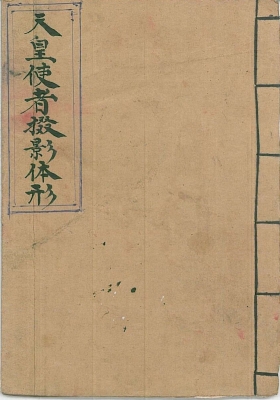 天皇使者掇影体形